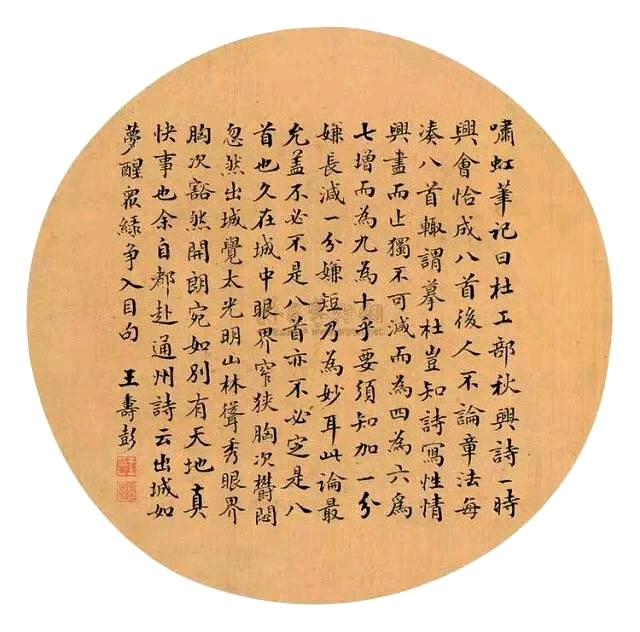 嘯虹筆记曰杜工部秋興詩一時
興會恰成八首後人不論章法每
湊八首輙謂摹杜豈知詩寫性情
興盡而止獨不可減而為四為六為
七增而為九為十乎要須知加一分
嫌長減一分嫌短乃為妙耳此論最
允盖不必不是八首亦不必定是八
首也久在城中眼界窄狹胸次欝悶
忽然出城覺太光明山林聳秀眼界
胸次豁然開朗宛如別有天地真
快事也余自都赴通州詩云出城如
夢醒眾綠争入目句
王壽彭